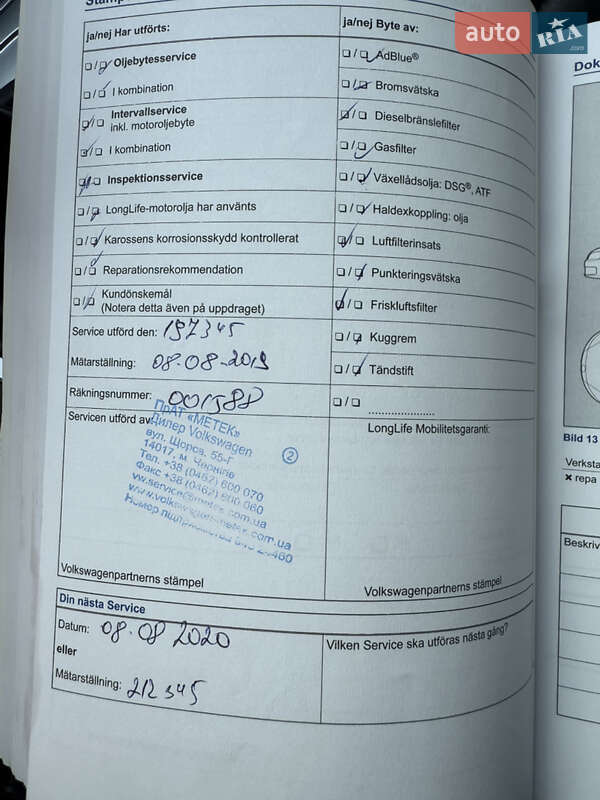 auto RIA .com
ja/nej Har utförts:
ja/nej Byte av:
Oljebytesservice
I kombination
Intervallservice
inkl. motoroljebyte
I kombination
Inspektionsservice
LongLife-motorolja har använts
Karossens korrosionsskydd kontrollerat
Reparationsrekommendation
Kundönskemål
(Notera detta även på uppdraget)
AdBlue®
Bromsvätska
Dieselbränslefilter
Gasfilter
Växellådsolja: DSG®, ATF
Haldexkoppling: olja
Luftfilterinsats
Punkteringsvätska
Friskluftsfilter
Kuggrem
Tändstift
Service utförd den: 197345
Mätarställning: 08.08-2019
Räkningsnummer: 001588
Servicen utförd av:
ПрАТ «МЕТЕК»
Дилер Volkswagen
вул. Щорса, 55-Г
14017, м. Чернігів
Тел. +38 (0462) 600 070
Факс +38 (0462) 600 060
2
LongLife Mobilitetsgaranti:
Volkswagenpartnerns stämpel
Volkswagenpartnerns stämpel
Din nästa Service
Datum: 08.08 2020
eller
Mätarställning: 212345
Vilken Service ska utföras nästa gång?
Dok
Bild 13
Verksta
repa
Beskriv